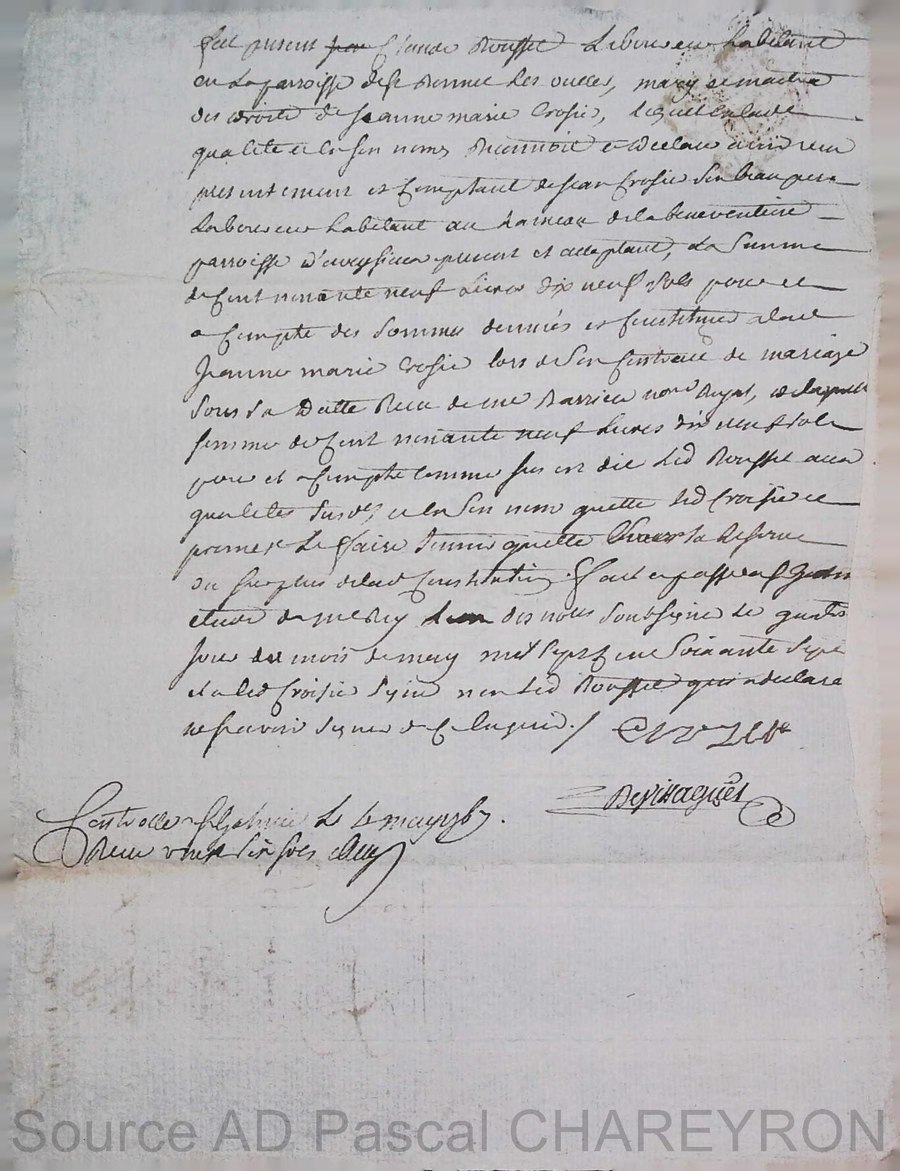 fut présent Claude Rousset Laboureur habitant
en la parroisse de St Bonnet Les oulles, mary et maitre
des droits de Jeanne marie Crosie, lequel en lade
qualité et en son nom Reconnoit et declare avoir reçu
presentement et Comptant de Jean Crosie son beau pere
Laboureur habitant au hameau de la beneventiere
parroisse d'aveysieu present et acceptant, La Somme
de Cent nonante neuf Livres dix neuf sols pour et
a Compte des Sommes données et Constitués alad
Jeanne marie Crosie lors de Son Contract de mariage
sous sa Datte Recu de me Barrieu nore Royal, de laquelle
somme de Cent nonante neuf Livres dix neuf sols
pour et a Compte Comme sus est dit Led Rousset aux
qualités Susd, et en Son nom quitte Led Croisie et
promet Le faire tenir quitte la Reserve
du surplus de lad Constitution. fait et passé a
etude de me Rey des notes Soubsigné Le quatre
jour du mois de may mil Sept Cent Soixante Sept
et a led Croisie Signé non Led Rousset qui a declaré
ne scavoir signer de Ce enquis./
Controllé a Galmier Le 4 may 1767.
Reçu vingt six sols
Source AD Pascal CHAREYRON